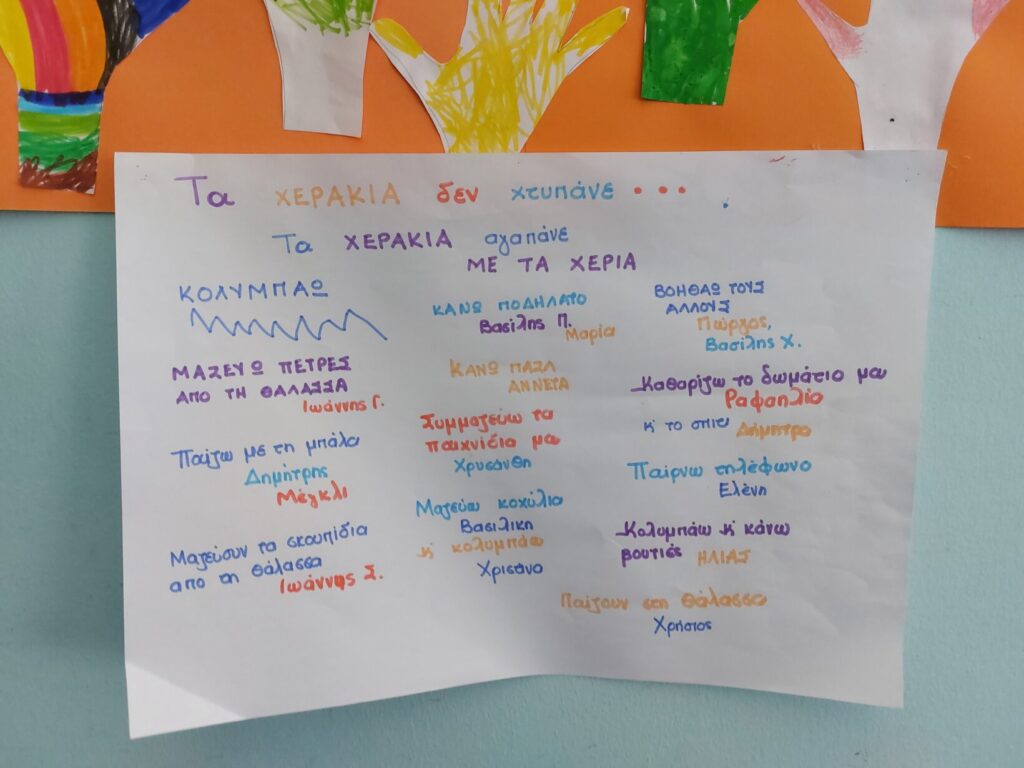 Τα ΧΕΡΑΚΙΑ δεν χτυπάνε...
Τα ΧΕΡΑΚΙΑ αγαπάνε
ΜΕ ΤΑ ΧΕΡΙΑ
ΚΟΛΥΜΠΑΩ
ΜΑΖΕΥΩ ΠΕΤΡΕΣ
ΑΠΟ ΤΗ ΘΑΛΑΣΣΑ
Ιωάννης Γ.
Παίζω με τη μπάλα
Δημήτρης
Μέγκλι
Μαζεύουν τα σκουπίδια
απο τη θάλασσα
Ιωάννης Σ.
ΚΑΝΩ ΠΟΔΗΛΑΤΟ
Βασίλης Π.
Μαρία
ΚΑΝΩ ΠΑΖΛ
ΑΝΝΕΤΑ
Συμμαζεύω τα
παιχνίδια μα
Χρυσάνθη
Μαζεύω κοχύλια
Βασιλικη
κ' κολυμπάω
Χρισάνα
ΒΟΗΘΑΩ ΤΟΥΣ
ΑΛΛΟΥΣ
Γιώργος,
Βασίλης Χ.
Καθαρίζω το δωμάτιο μου
Ραφαηλία
κ' το σπίτι Δήμητρα
Παίρνω τηλέφωνο
Ελένη
Κολυμπάω κ' κάνω
βουτιές ΗΛΙΑΣ
Παίζουν στη θάλασσα
Χρήστος